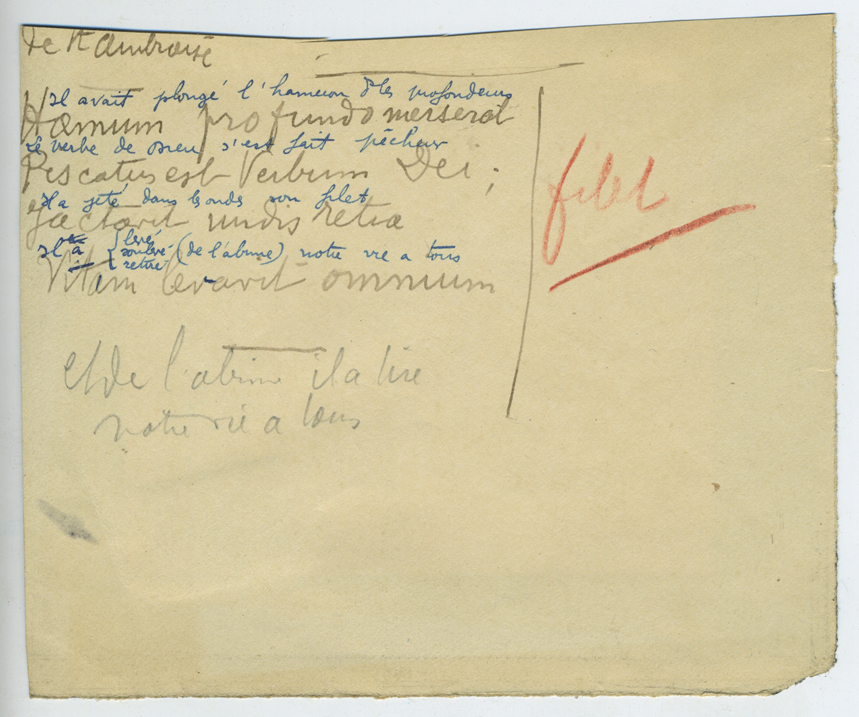 de St Ambroise
Il avait plongé l'hameçon ds les profondeurs
Hamum profundo merserat
Le verbe de Dieu s'est fait pêcheur
Piscatus est Verbum Dei ;
Il a jeté dans l'onde son filet
Jactavit undis retia
filet
levé
Il a soulevé (de l'abime) notre vie a tous
retiré
Vitam levavit omnium
Et de l'abime il a tiré
notre vie a tous